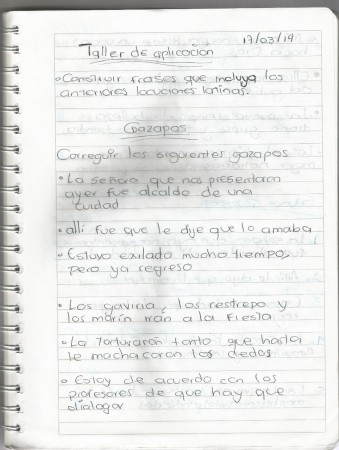 17/03/14
Taller de aplicación
• Construir frases que incluya los
anteriores locuciones latinas.
Gazapos
Corregir los siguientes gazapos
• La señora que nos presentaron
ayer fue alcalde de una
ciudad
• allí fue que le dije que lo amaba
• Estuvo exilado mucho tiempo,
pero ya regreso
• Los gaviria, los restrepo y
los marín irán a la fiesta
• La torturaron tanto que hasta
le machacaron los dedos.
• Estoy de acuerdo con los
profesores de que hay que
dialogar